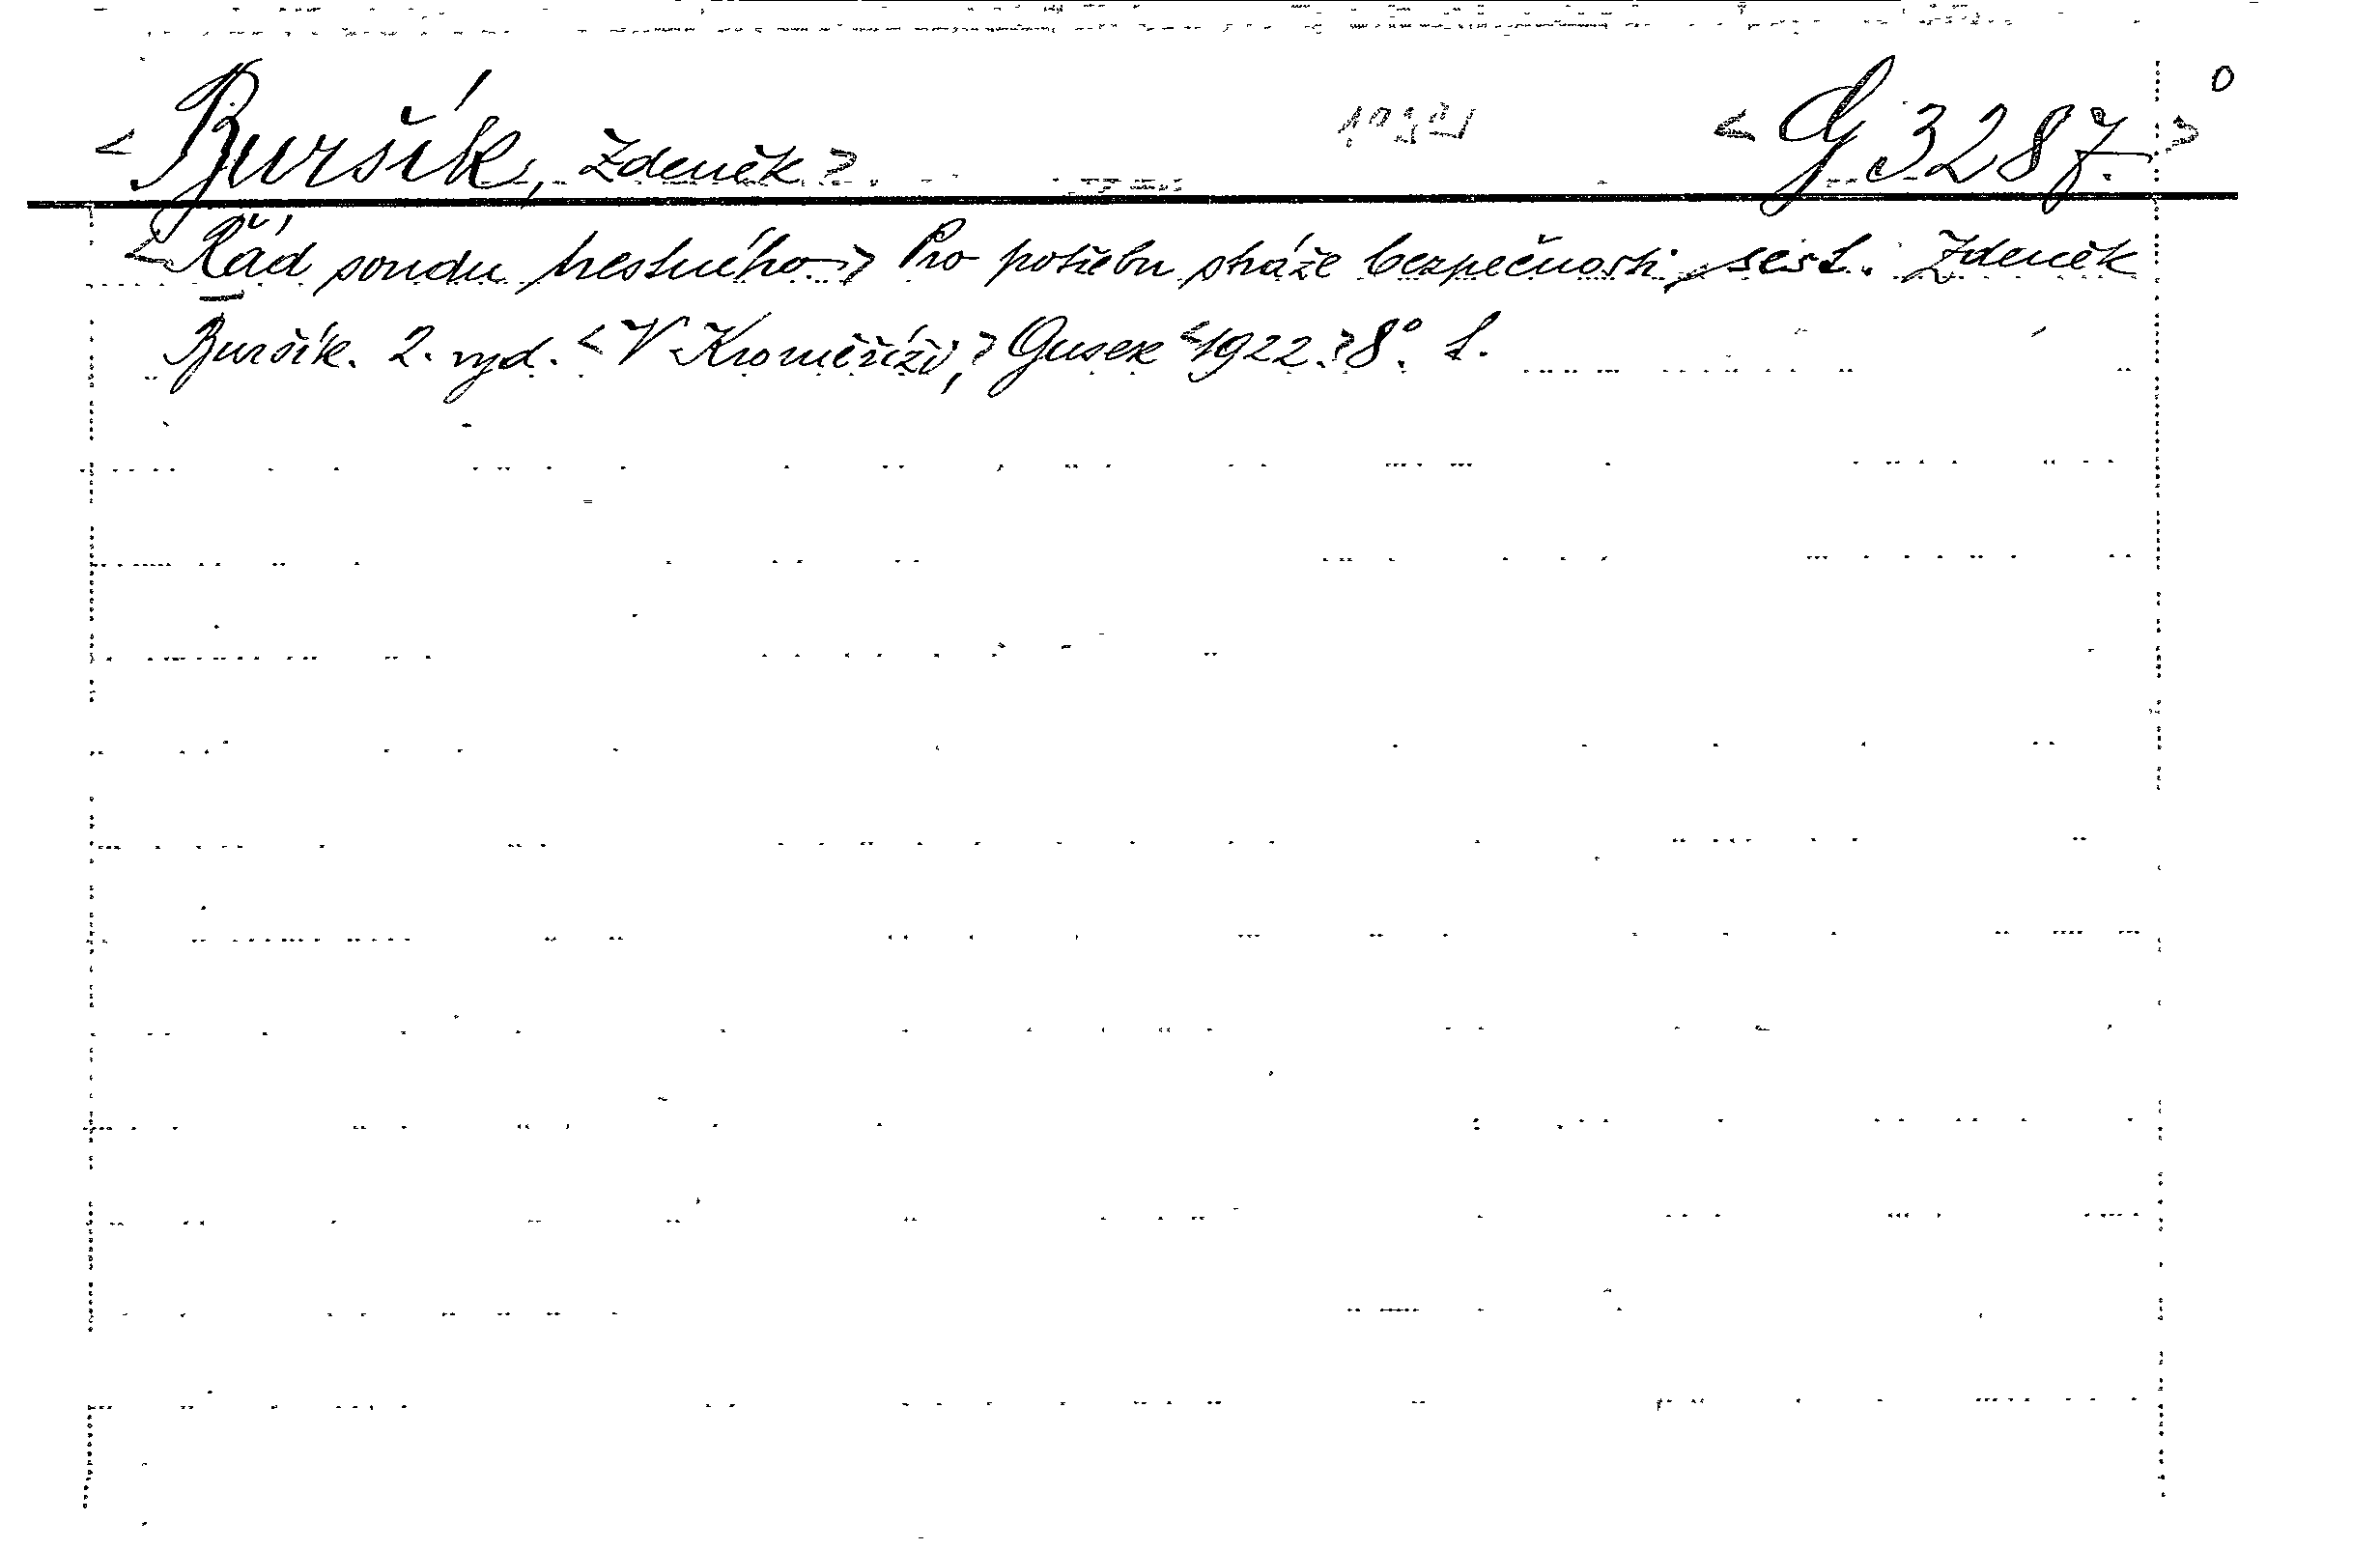 <Buršík, Zdeněk> <G 3287.> o
<Řád soudu trestního> Pro potřebu stráže bezpečnosti sest. Zdeněk
Buršík. 2. vyd. <V Kroměříži,> Gusek <1922.> 8°. L.